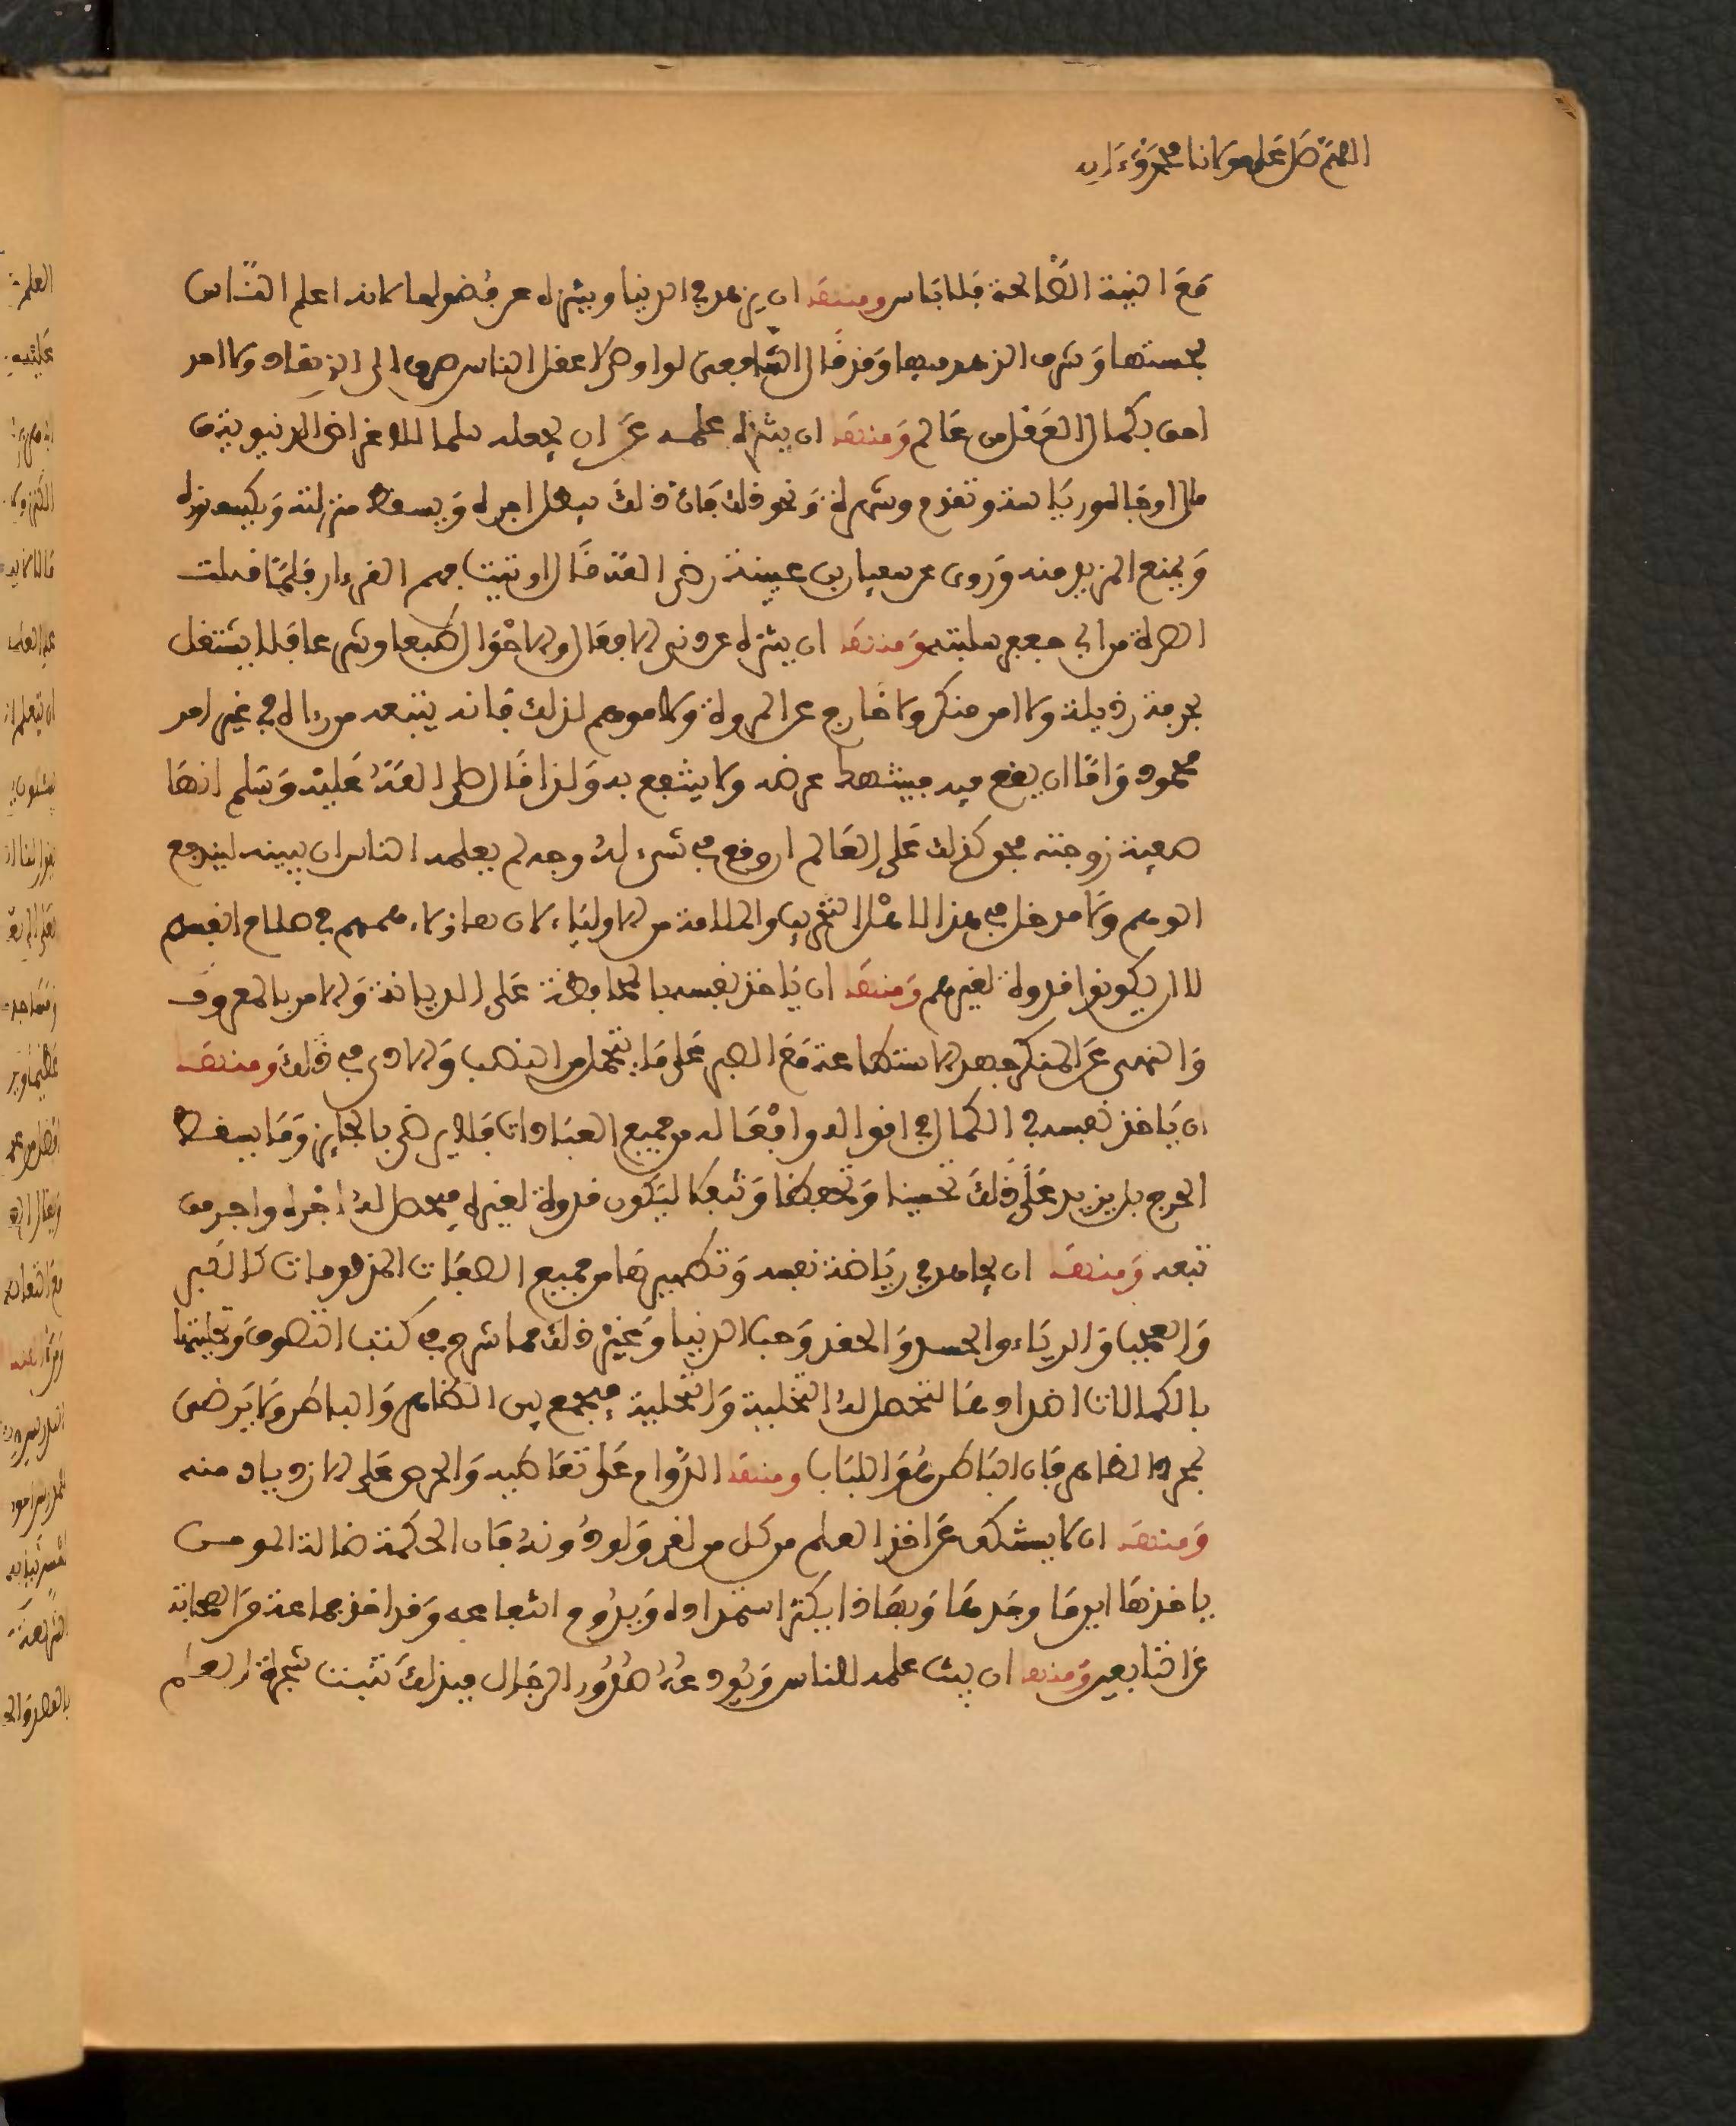 اللهم صل على مولانا محمد وءاله
مع النية الصالحة فلا باس ومنها ان يزهد في الدنيا ويتنزه عن فضولها لانه اعلم الناس
بخستها وشرف الزهد فيها وقد قال الشافعي لو اوصي لاعقل الناس صرف الى الزهاد ولا احد
احق بكمال العقل من عالم ومنها ان ينزه علمه عن ان يجعله سلما للاغراض الدنيوية من
مال او جاه او رياسة وتقدم وشهرة ونحو ذلك فان ذلك يبطل اجره ويسقط منزلته ويكسف نوره
ويمنع المزيد منه وروي عن سفيان بن عيينة رضي الله قال اوتيت فهم القرءان فلما قبلت
الصرة من ابي جعفر سلبته ومنها ان يتنزه عن دني الافعال والاحوال طبعا وشرعا فلا يشتغل
بحرفة رذيلة ولا امر منكر ولا خارج عن المروة ولا موهم لذلك فانه يتبعه من رءاه في غير امر
محمود واما ان يقع فيه فينتهك عرضه ولا ينتفع به ولذا قال صلى الله عليه وسلم انها
صفية زوجته فهو كذلك على العالم ان وقع في شيء له وجه لم يعلمه الناس ان يبينه ليندفع
الوهم ولا مدخل في هذا لامثال التخريب والملامة من الاولياء لان هاؤلاء همهم في صلاح انفسهم
لا ان يكونوا قدوة لغيرهم ومنها ان ياخذ نفسه بالمحافظة على الديانة والامر بالمعروف
والنهي عن المنكر جهد الاستطاعة مع الصبر على ما يتحمل من النصب والاذى في ذلك ومنها
ان ياخذ نفسه في الكمال في اقواله وافعاله من جميع العبادات فلا يرضى بالجايز وما يسقط
الحرج بل يزيد على ذلك تحسينا وتحفظا وتثبتا ليكون قدوة لغيره فيحصل له اجره واجر من
تبعه ومنها ان يجاهد في رياضة نفسه وتطهيرها من جميع الصفات المذمومات كالكبر
والعجب والرياء والحسد والحقد وحب الدنيا وغير ذلك مما شرح في كتب التصوف وتحليتها
بالكمالات اضدادها لتحصل له التخلية والتحلية فيجمع بين الظاهر والباطن ولا يرضى
بمجرد الظاهر فان الباطن هو اللباب ومنها الدوام على تعاطيه والحرص على الازدياد منه
ومنها ان لا يستنكف عن اخذ العلم من كل من لقي ولو دونه فان الحكمة ضالة المومن
ياخذها اين ما وجدها وبهذا يكثر استمداده ويدوم انتفاعه وقد اخذ جماعة من الصحابة
عن التابعين ومنها ان يبث علمه للناس ويودعه صدور الرجال فبذلك تثبت شجرة العلم